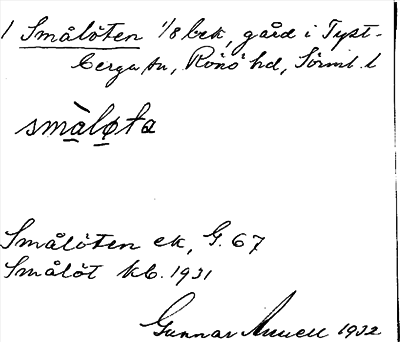 1 Smålöten 1/8 bek, gård i Tyst-
berga sn, Rönö hd, Sörml. l
smàløta
Smålöten ek, G. 67
Smålöt kb. 1931
Gunnar 1932